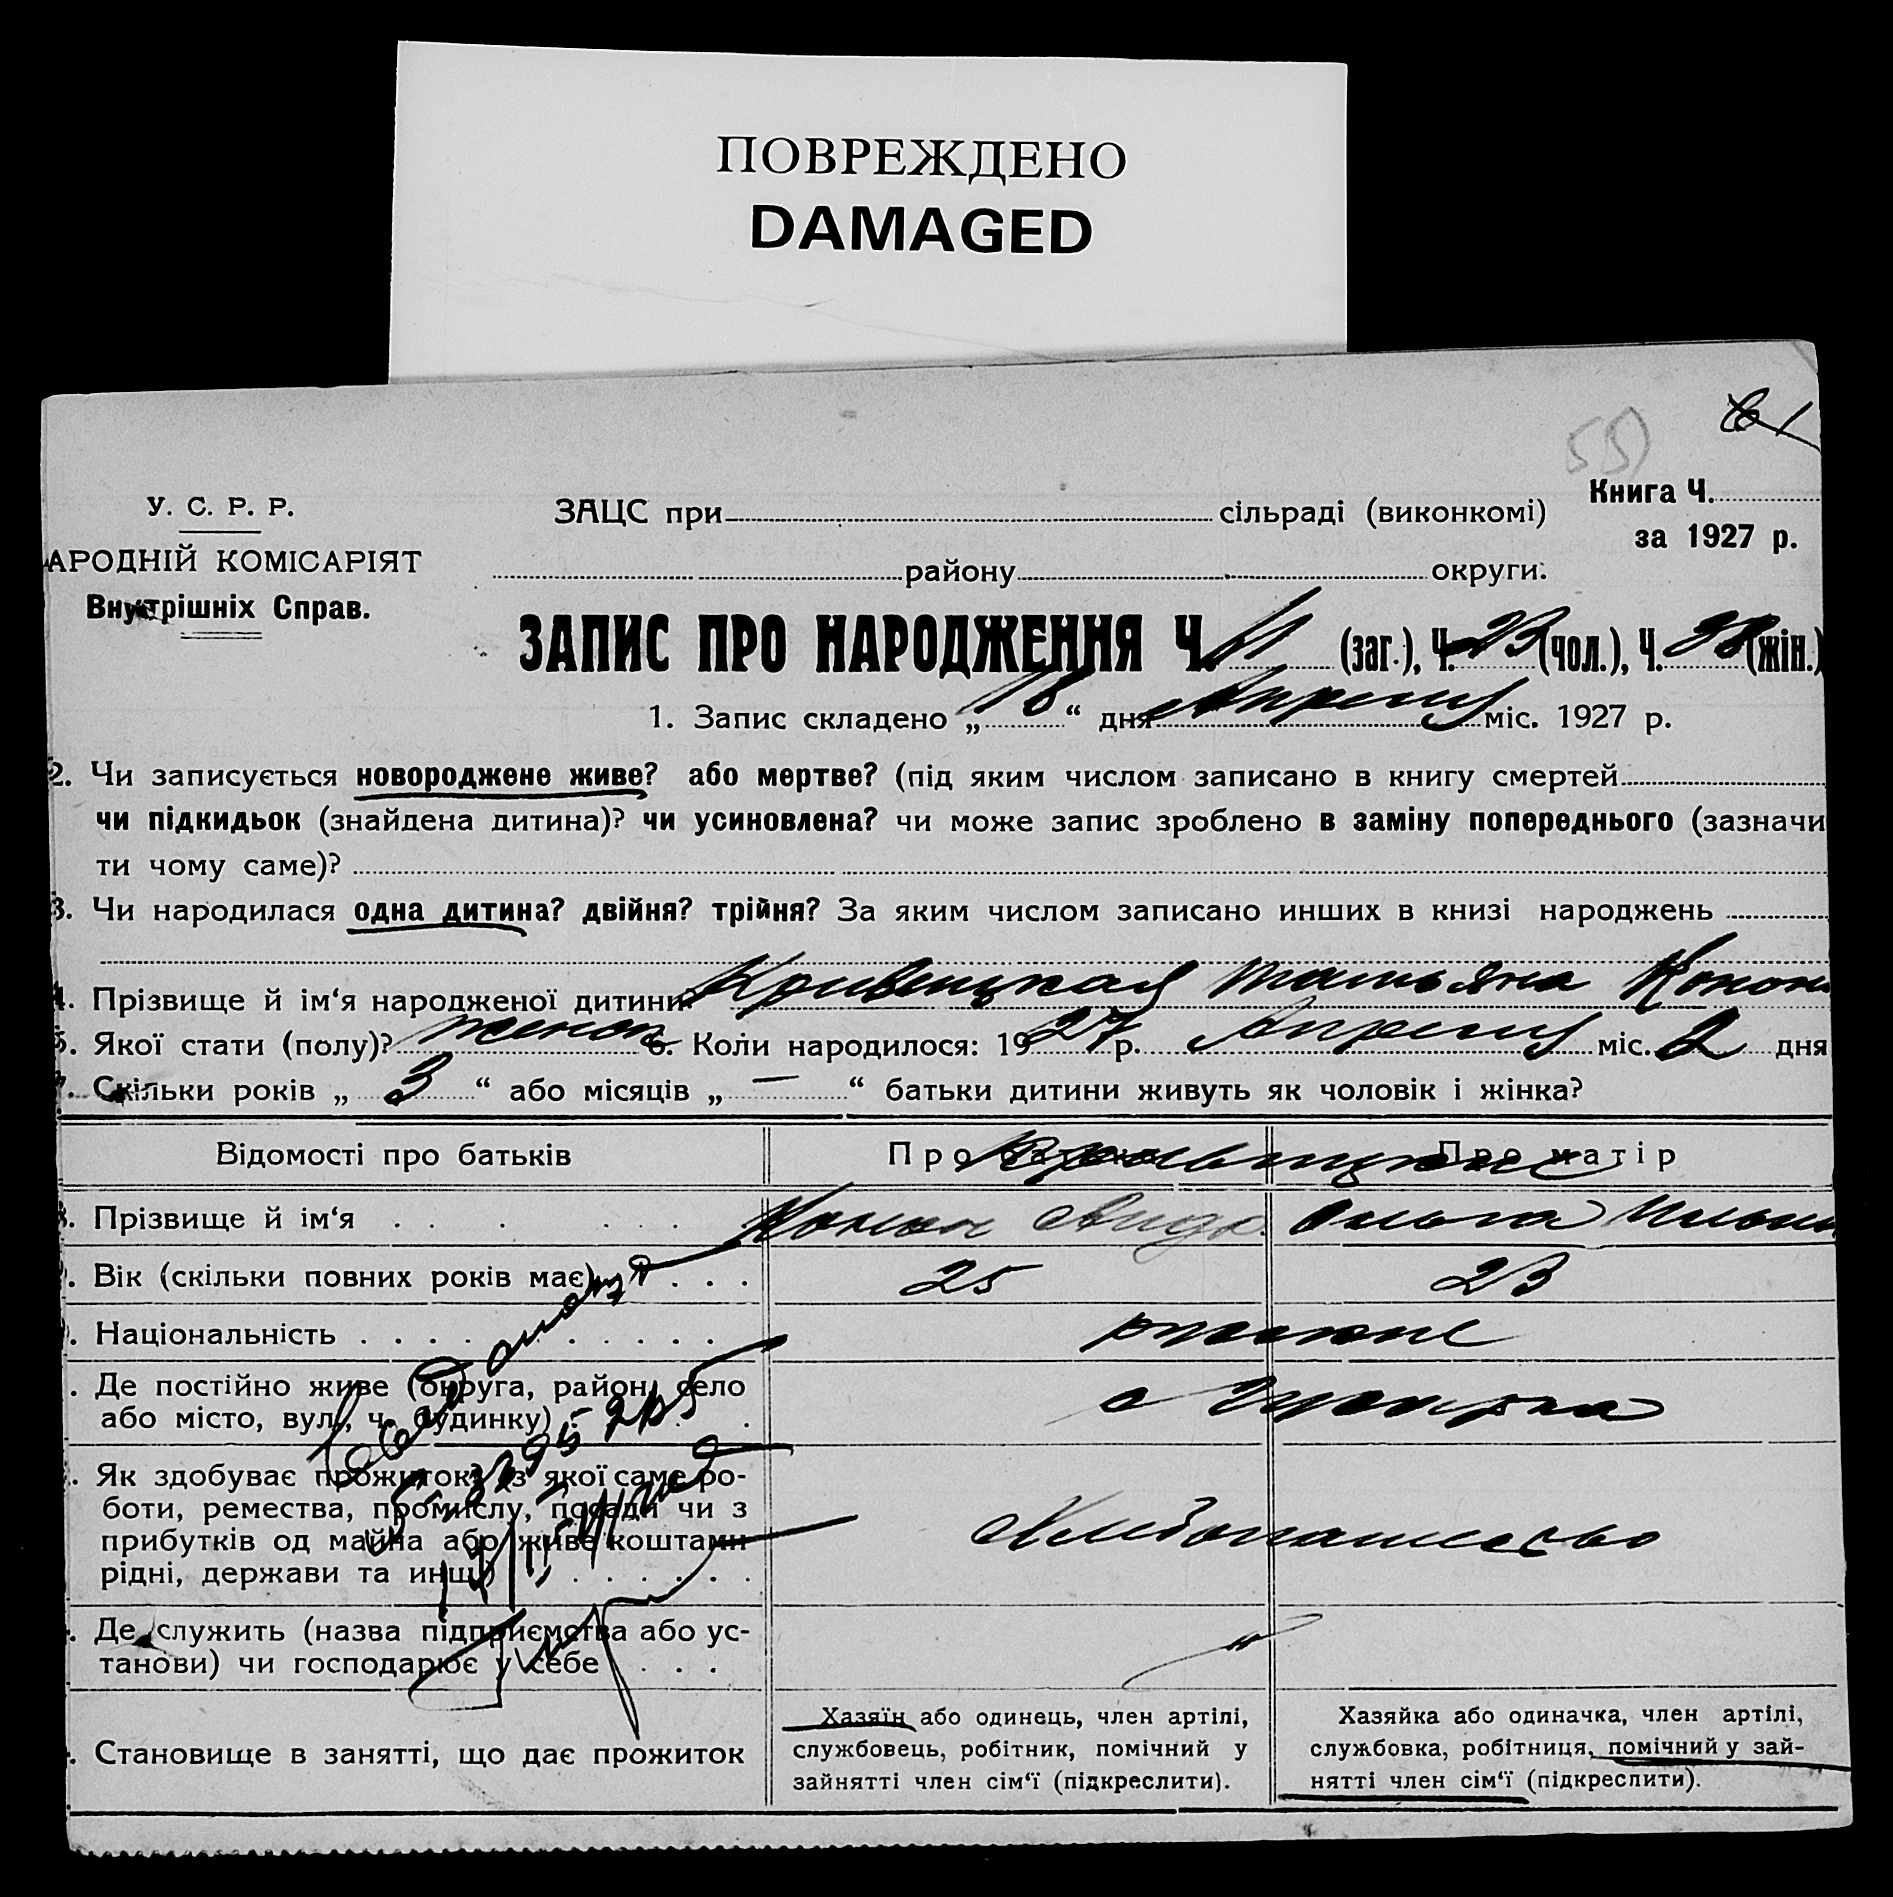 ПОВРЕЖДЕНО
DAMAGED
55
У. С. Р. Р.
АРОДНІЙ КОМІСАРІЯТ
Внутрішніх Справ.
ЗАЦС при сільраді (виконкомі)
Книга Ч.
за 1927 р.
району округи.
ЗАПИС ПРО НАРОДЖЕННЯ Ч. 61 (заг.), Ч. 23 (чол.), Ч. 38 (жін.)
1. Запис складено „ 18 “ дня Апреля міс. 1927 р.
2. Чи записується новороджене живе? або мертве? (під яким числом записано в книгу смертей
чи підкидьок (знайдена дитина)? чи усиновлена? чи може запис зроблено в заміну попереднього (зазначи
ти чому саме)?
3. Чи народилася одна дитина? двійня? трійня? За яким числом записано инших в книзі народжень
4. Прізвище й ім‘я народженої дитини? Кривицкая Татьяна Конон
5. Якої стати (полу)? женск 6. Коли народилося: 1927 р. Апреля міс. 2 дня
7. Скільки років „ 3 “ або місяців „ — “ батьки дитини живуть як чоловік і жінка?
Відомості про батьків Про батька Про матір
Прізвище й ім‘я Конон Ольга
Вік (скільки повних років має) 25 23
Національність
Де постійно живе (округа, район, село
або місто, вул., ч. будинку) с
Як здобуває прожиток? (з якої саме ро-
боти, ремества, промислу, посади чи з
прибутків од майна або живе коштами
рідні, держави та инш.) Хлебопашество
Де служить (назва підприємства або ус-
танови) чи господарює у себе
Становище в занятті, що дає прожиток
Хазяїн або одинець, член артілі,
службовець, робітник, помічний у
зайнятті член сім‘ї (підкреслити).
Хазяйка або одиначка, член артілі,
службовка, робітниця, помічний у зай-
нятті член сім‘ї (підкреслити).